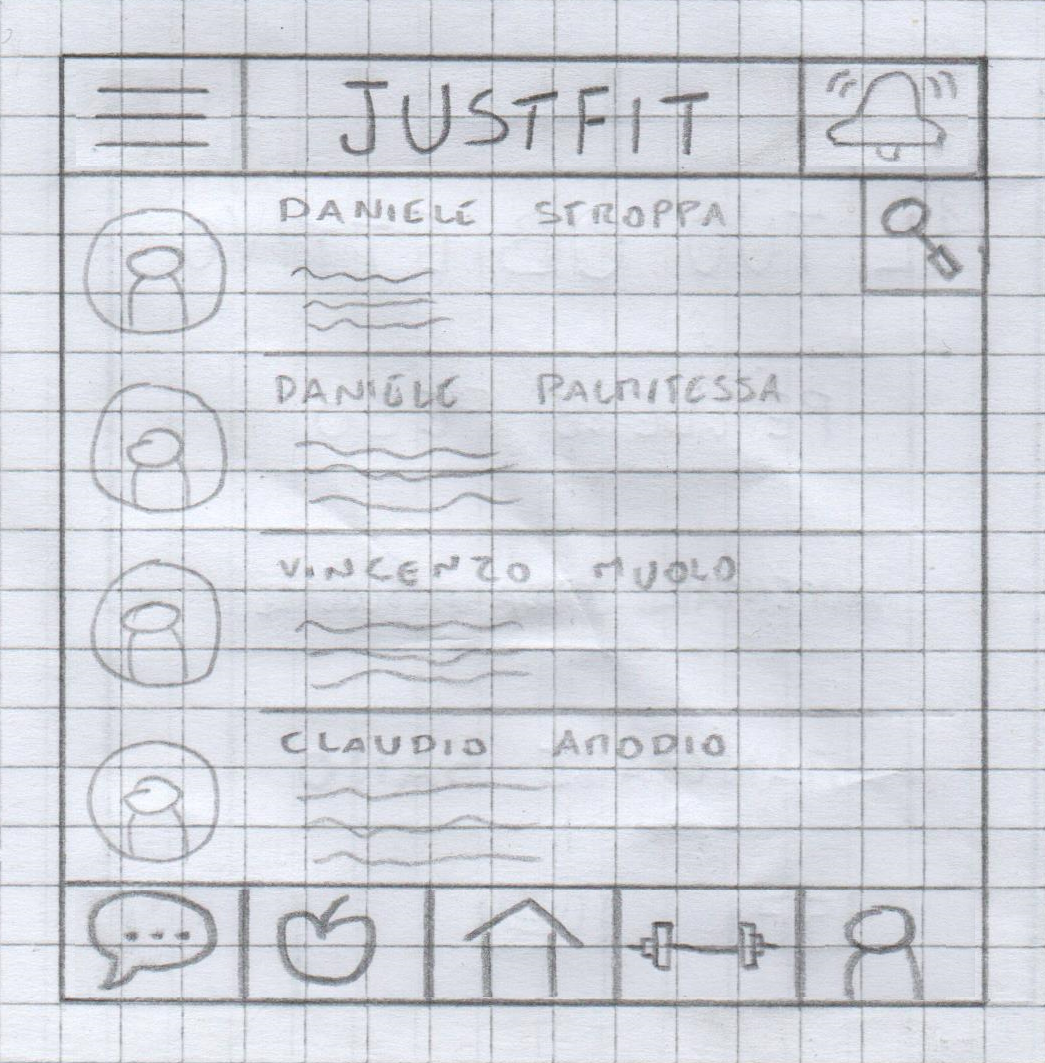 JUSTFIT
DANIELE STROPPA
DANIELE PALMITESSA
VINCENZO MUOLO
CLAUDIO AMODIO